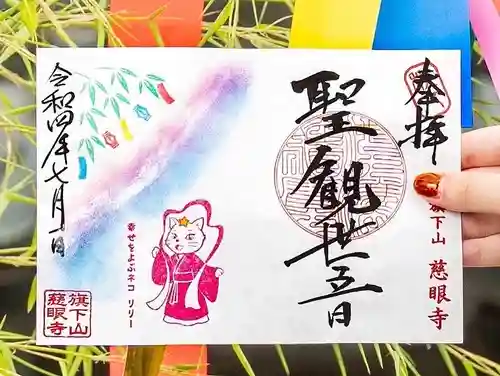 奉拝
旗下山 慈眼寺
聖觀世音
幸せをよぶネコ リリー
令和四年七月一日
旗下山
慈眼寺